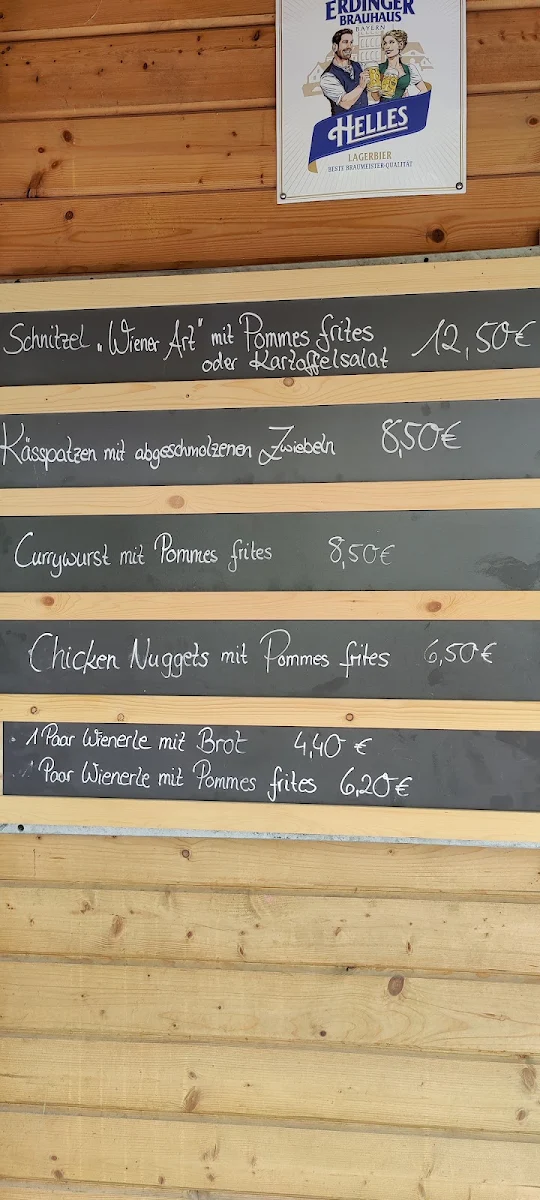 ERDINGER
BRAUHAUS
BAYERN
HELLES
LAGERBIER
BESTE BRAUMEISTER-QUALITÄT
Schnitzel „Wiener Art" mit Pommes frites 12,50€
oder Kartoffelsalat
Kässpatzen mit abgeschmolzenen Zwiebeln 8,50€
Currywurst mit Pommes frites 8,50€
Chicken Nuggets mit Pommes frites 6,50€
· 1 Paar Wienerle mit Brot 4,40 €
· 1 Paar Wienerle mit Pommes frites 6,20€